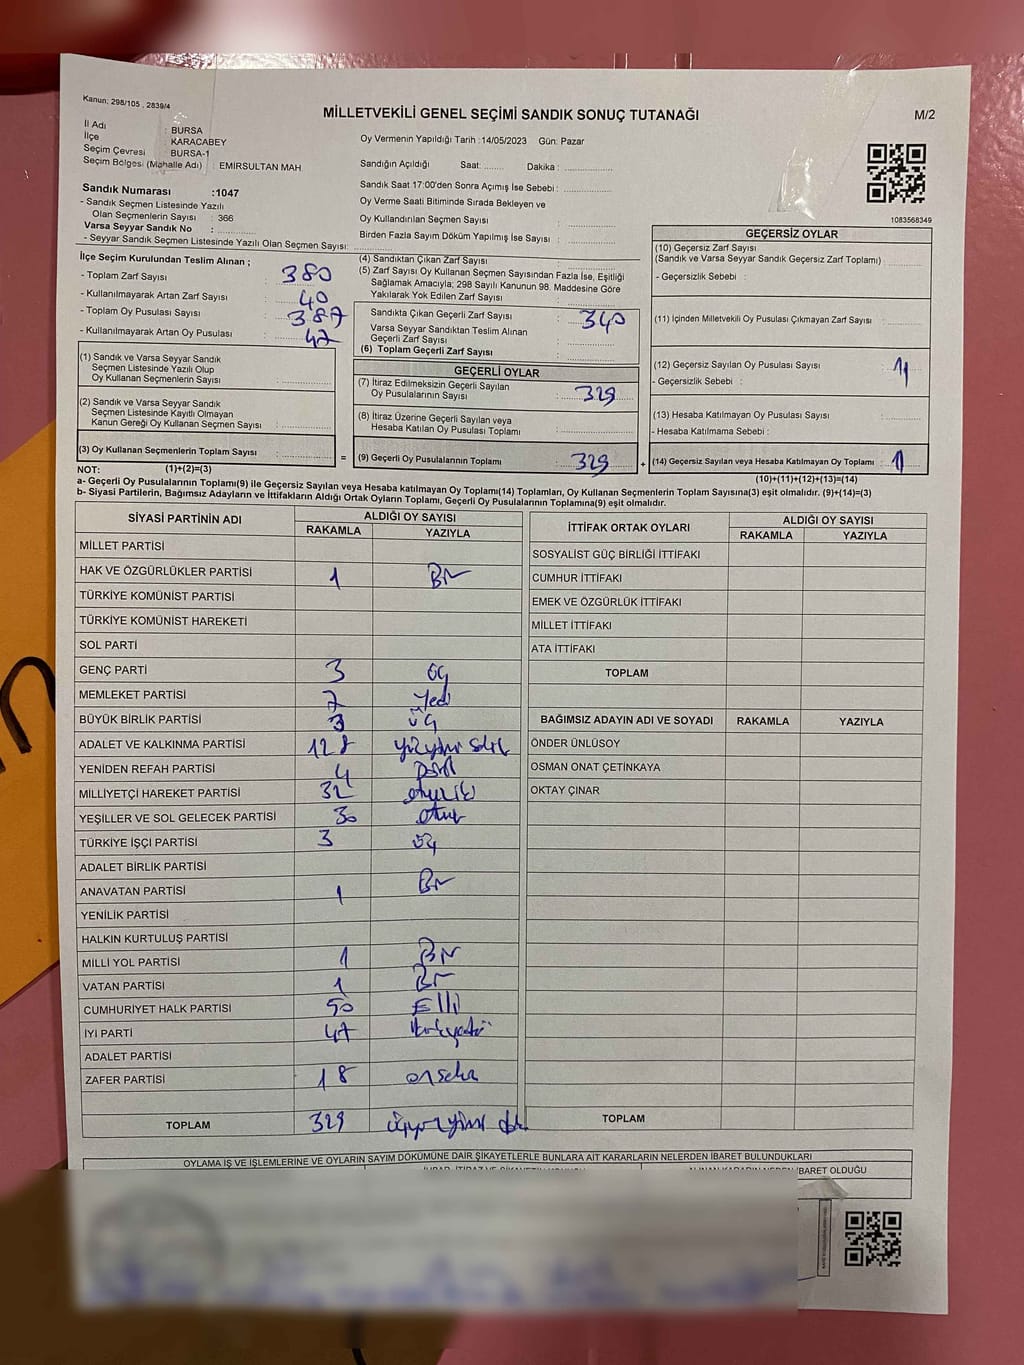 Kanun: 298/105 , 2839/4
MİLLETVEKİLİ GENEL SEÇİMİ SANDIK SONUÇ TUTANAĞI
M/2
İl Adı : BURSA
İlçe KARACABEY
Seçim Çevresi BURSA-1
Seçim Bölgesi (Mahalle Adı) : EMİRSULTAN MAH
Sandık Numarası :1047
- Sandık Seçmen Listesinde Yazılı
Olan Seçmenlerin Sayısı : 366
Varsa Seyyar Sandık No :
- Seyyar Sandık Seçmen Listesinde Yazılı Olan Seçmen Sayısı:
Oy Vermenin Yapıldığı Tarih :14/05/2023 Gün: Pazar
Sandığın Açıldığı Saat: Dakika :
Sandık Saat 17:00'den Sonra Açımış İse Sebebi :
Oy Verme Saati Bitiminde Sırada Bekleyen ve
Oy Kullandırılan Seçmen Sayısı :
Birden Fazla Sayım Döküm Yapılmış İse Sayısı :
1083568349
İlçe Seçim Kurulundan Teslim Alınan ;
- Toplam Zarf Sayısı : 380
- Kullanılmayarak Artan Zarf Sayısı : 40
- Toplam Oy Pusulası Sayısı : 387
- Kullanılmayarak Artan Oy Pusulası : 47
(1) Sandık ve Varsa Seyyar Sandık
Seçmen Listesinde Yazılı Olup
Oy Kullanan Seçmenlerin Sayısı :
(2) Sandık ve Varsa Seyyar Sandık
Seçmen Listesinde Kayıtlı Olmayan
Kanun Gereği Oy Kullanan Seçmen Sayısı :
(3) Oy Kullanan Seçmenlerin Toplam Sayısı :
(4) Sandıktan Çıkan Zarf Sayısı :
(5) Zarf Sayısı Oy Kullanan Seçmen Sayısından Fazla İse, Eşitliği
Sağlamak Amacıyla; 298 Sayılı Kanunun 98. Maddesine Göre
Yakılarak Yok Edilen Zarf Sayısı :
Sandıkta Çıkan Geçerli Zarf Sayısı : 340
Varsa Seyyar Sandıktan Teslim Alınan
Geçerli Zarf Sayısı :
(6) Toplam Geçerli Zarf Sayısı :
GEÇERLİ OYLAR
(7) İtiraz Edilmeksizin Geçerli Sayılan
Oy Pusulalarının Sayısı : 329
(8) İtiraz Üzerine Geçerli Sayılan veya
Hesaba Katılan Oy Pusulası Toplamı :
= (9) Geçerli Oy Pusulalarının Toplamı : 329
GEÇERSİZ OYLAR
(10) Geçersiz Zarf Sayısı
(Sandık ve Varsa Seyyar Sandık Geçersiz Zarf Toplamı) :
- Geçersizlik Sebebi :
(11) İçinden Milletvekili Oy Pusulası Çıkmayan Zarf Sayısı :
(12) Geçersiz Sayılan Oy Pusulası Sayısı : 11
- Geçersizlik Sebebi :
(13) Hesaba Katılmayan Oy Pusulası Sayısı :
- Hesaba Katılmama Sebebi :
+ (14) Geçersiz Sayılan veya Hesaba Katılmayan Oy Toplamı : 11
NOT: (1)+(2)=(3)
(10)+(11)+(12)+(13)=(14)
a- Geçerli Oy Pusulalarının Toplamı(9) ile Geçersiz Sayılan veya Hesaba katılmayan Oy Toplamı(14) Toplamları, Oy Kullanan Seçmenlerin Toplam Sayısına(3) eşit olmalıdır. (9)+(14)=(3)
b- Siyasi Partilerin, Bağımsız Adayların ve İttifakların Aldığı Ortak Oyların Toplamı, Geçerli Oy Pusulalarının Toplamına(9) eşit olmalıdır.
SİYASİ PARTİNİN ADI ALDIĞI OY SAYISI
RAKAMLA YAZIYLA
MİLLET PARTİSİ
HAK VE ÖZGÜRLÜKLER PARTİSİ 1 Bir
TÜRKİYE KOMÜNİST PARTİSİ
TÜRKİYE KOMÜNİST HAREKETİ
SOL PARTİ
GENÇ PARTİ 3 üç
MEMLEKET PARTİSİ 7 Yedi
BÜYÜK BİRLİK PARTİSİ 3 üç
ADALET VE KALKINMA PARTİSİ 128 yüzyirmi sekiz
YENİDEN REFAH PARTİSİ 4 Dört
MİLLİYETÇİ HAREKET PARTİSİ 32 otuziki
YEŞİLLER VE SOL GELECEK PARTİSİ 30 otuz
TÜRKİYE İŞÇİ PARTİSİ 3 üç
ADALET BİRLİK PARTİSİ
ANAVATAN PARTİSİ 1 Bir
YENİLİK PARTİSİ
HALKIN KURTULUŞ PARTİSİ
MİLLİ YOL PARTİSİ 1 Bir
VATAN PARTİSİ 1 Bir
CUMHURİYET HALK PARTİSİ 50 Elli
İYİ PARTİ 47 kırkyedi
ADALET PARTİSİ
ZAFER PARTİSİ 18 onsekiz
TOPLAM 329 üçyüzyirmi dokuz
İTTİFAK ORTAK OYLARI ALDIĞI OY SAYISI
RAKAMLA YAZIYLA
SOSYALİST GÜÇ BİRLİĞİ İTTİFAKI
CUMHUR İTTİFAKI
EMEK VE ÖZGÜRLÜK İTTİFAKI
MİLLET İTTİFAKI
ATA İTTİFAKI
TOPLAM
BAĞIMSIZ ADAYIN ADI VE SOYADI RAKAMLA YAZIYLA
ÖNDER ÜNLÜSOY
OSMAN ONAT ÇETİNKAYA
OKTAY ÇINAR
TOPLAM
OYLAMA İŞ VE İŞLEMLERİNE VE OYLARIN SAYIM DÖKÜMÜNE DAİR ŞİKAYETLERLE BUNLARA AİT KARARLARIN NELERDEN İBARET BULUNDUKLARI
İBARET OLDUĞU